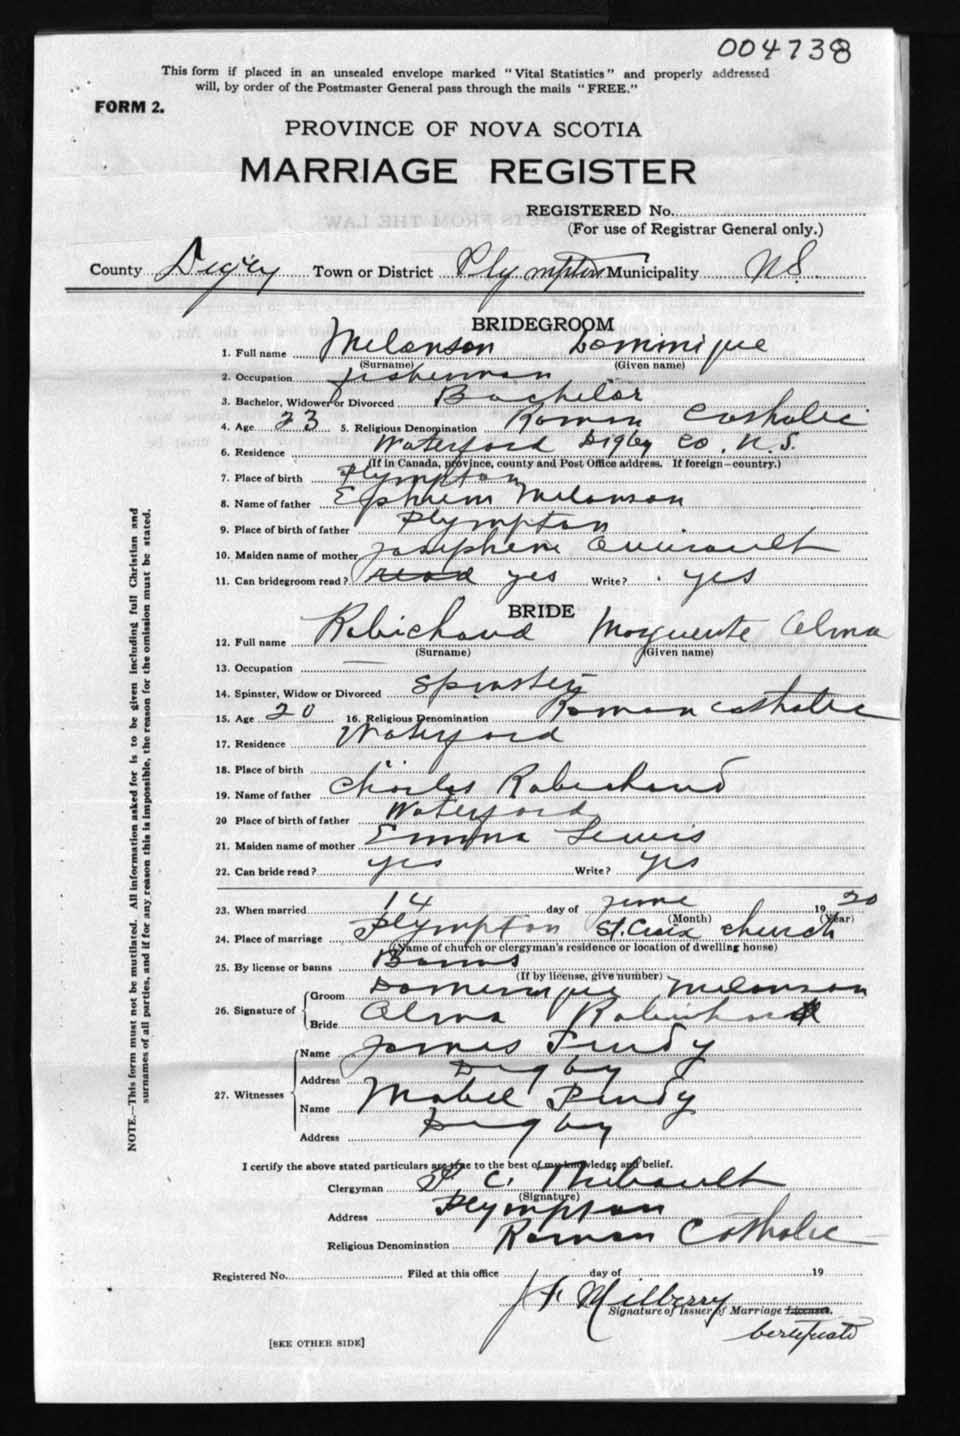 004738
This form if placed in an unsealed envelope marked "Vital Statistics" and properly addressed
will, by order of the Postmaster General pass through the mails "FREE."
FORM 2.
PROVINCE OF NOVA SCOTIA
MARRIAGE REGISTER
REGISTERED No.
(For use of Registrar General only.)
County Digby Town or District Plympton Municipality N.S.
BRIDEGROOM
1. Full name Melanson Dominique
(Surname) (Given name)
2. Occupation fisherman
3. Bachelor, Widower or Divorced Bachelor
4. Age 23 5. Religious Denomination Roman Catholic
6. Residence Waterford Digby Co. N.S.
(If in Canada, province, county and Post Office address. If foreign—country.)
7. Place of birth Plympton
8. Name of father Ephrem Melanson
9. Place of birth of father Plympton
10. Maiden name of mother Josephine
11. Can bridegroom read? read yes Write? yes
BRIDE
12. Full name Robichaud Marguerite Alma
(Surname) (Given name)
13. Occupation —
14. Spinster, Widow or Divorced Spinster
15. Age 20 16. Religious Denomination Roman Catholic
17. Residence Waterford
18. Place of birth "
19. Name of father Charles Robichaud
20 Place of birth of father Waterford
21. Maiden name of mother Emma Lewis
22. Can bride read? yes Write? yes
23. When married 14 day of June 1920
(Month) (Year)
24. Place of marriage Plympton St. Croix church
(Name of church or clergyman's residence or location of dwelling house)
25. By license or banns Banns
(If by license, give number)
26. Signature of Groom Dominique Melanson
Bride Alma Robichaud
27. Witnesses Name James Purdy
Address Digby
Name Mabel Purdy
Address Digby
I certify the above stated particulars are true to the best of my knowledge and belief.
Clergyman C. Thibault
(Signature)
Address Plympton
Religious Denomination Roman Catholic
Registered No. Filed at this office day of 19
J F Milberry
Signature of Issuer of Marriage License.
Certificate
[SEE OTHER SIDE]
NOTE.—This form must not be mutilated. All information asked for is to be given including full Christian and
surnames of all parties, and if for any reason this is impossible, the reason for the omission must be stated.